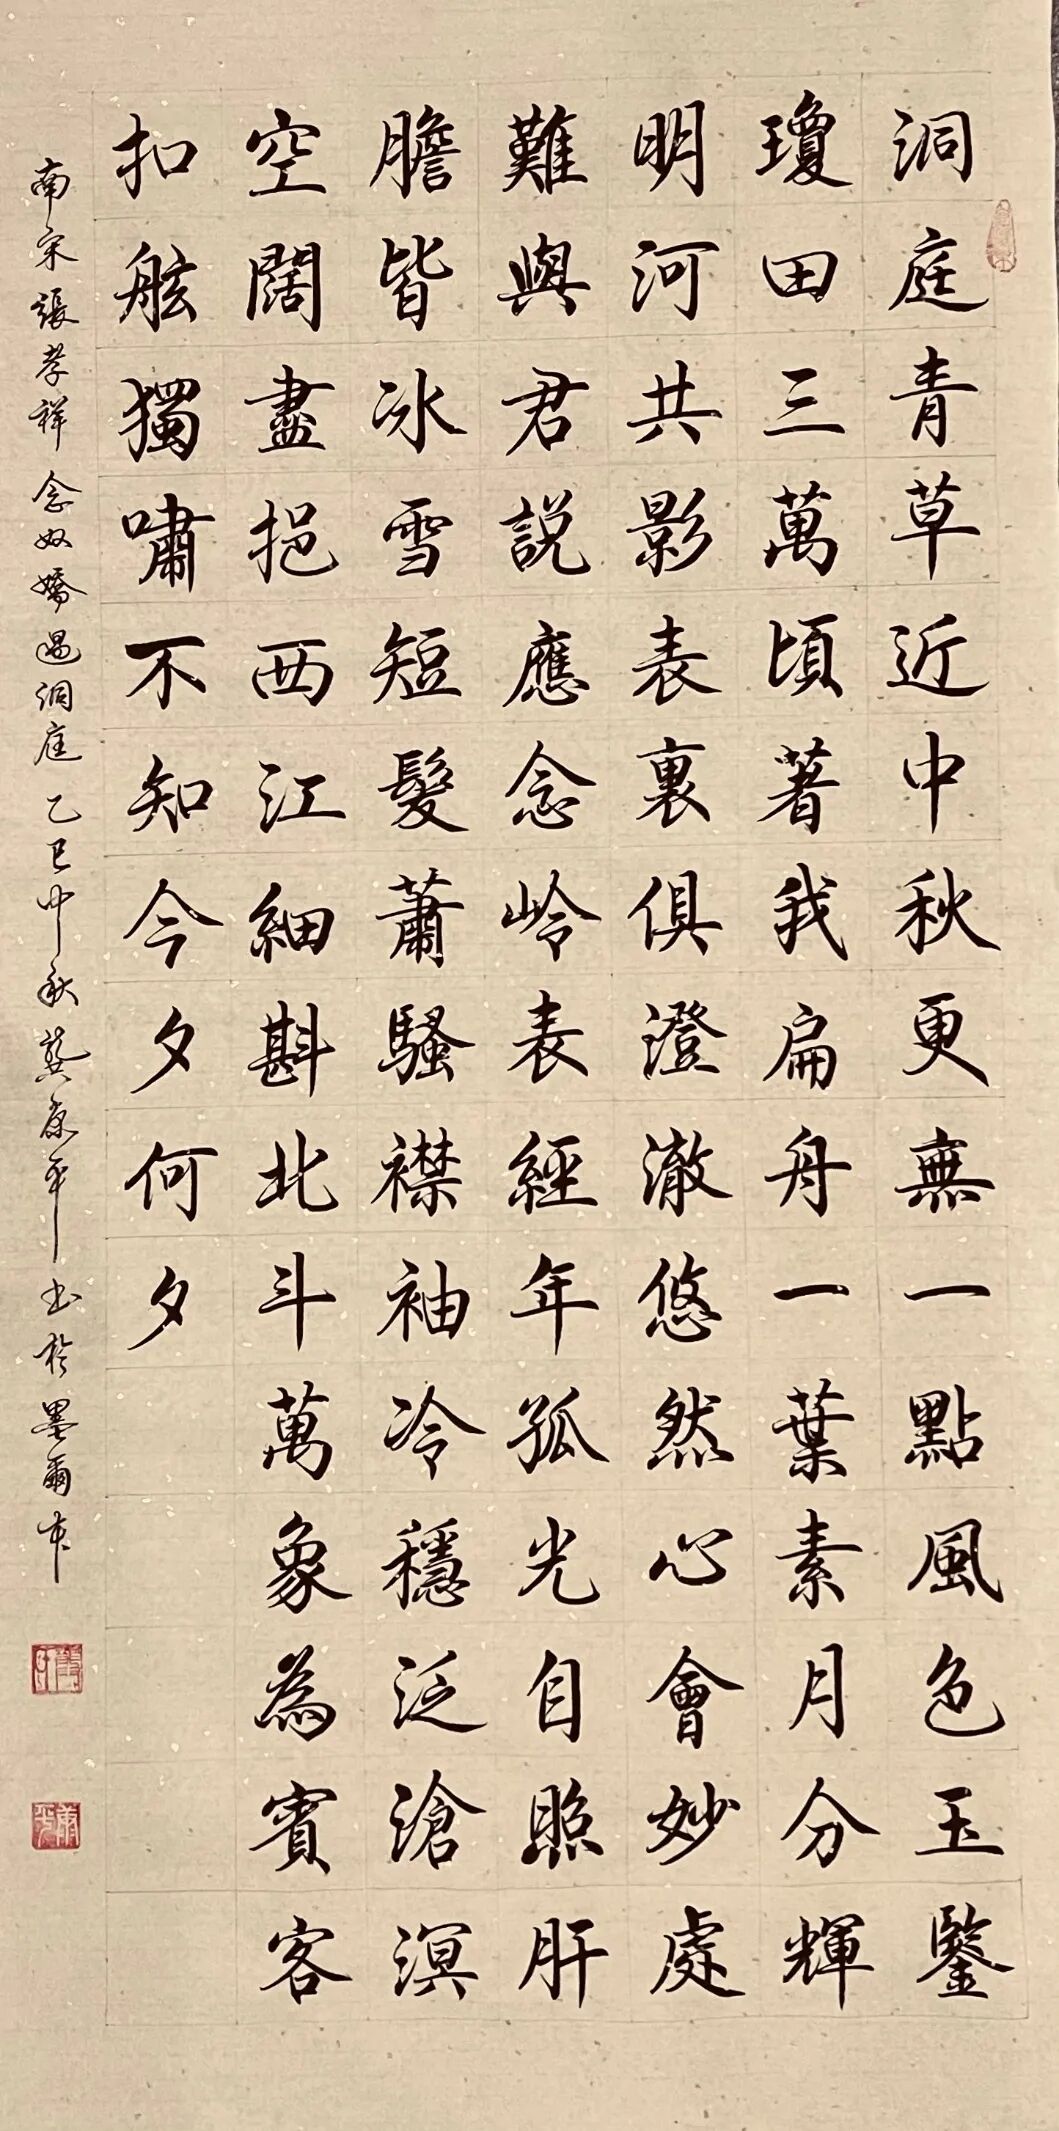 洞庭青草近中秋更無一點風色玉鑒
瓊田三萬頃著我扁舟一葉素月分輝
明河共影表裏俱澄澈悠然心會妙處
難與君説應念嶺表經年孤光自照肝
膽皆冰雪短髮蕭騷襟袖冷穩泛滄溟
空闊盡挹西江細斟北斗萬象為賓客
扣舷獨嘯不知今夕何夕
南宋張孝祥念奴嬌過洞庭乙巳中秋龔康平書於墨爾本